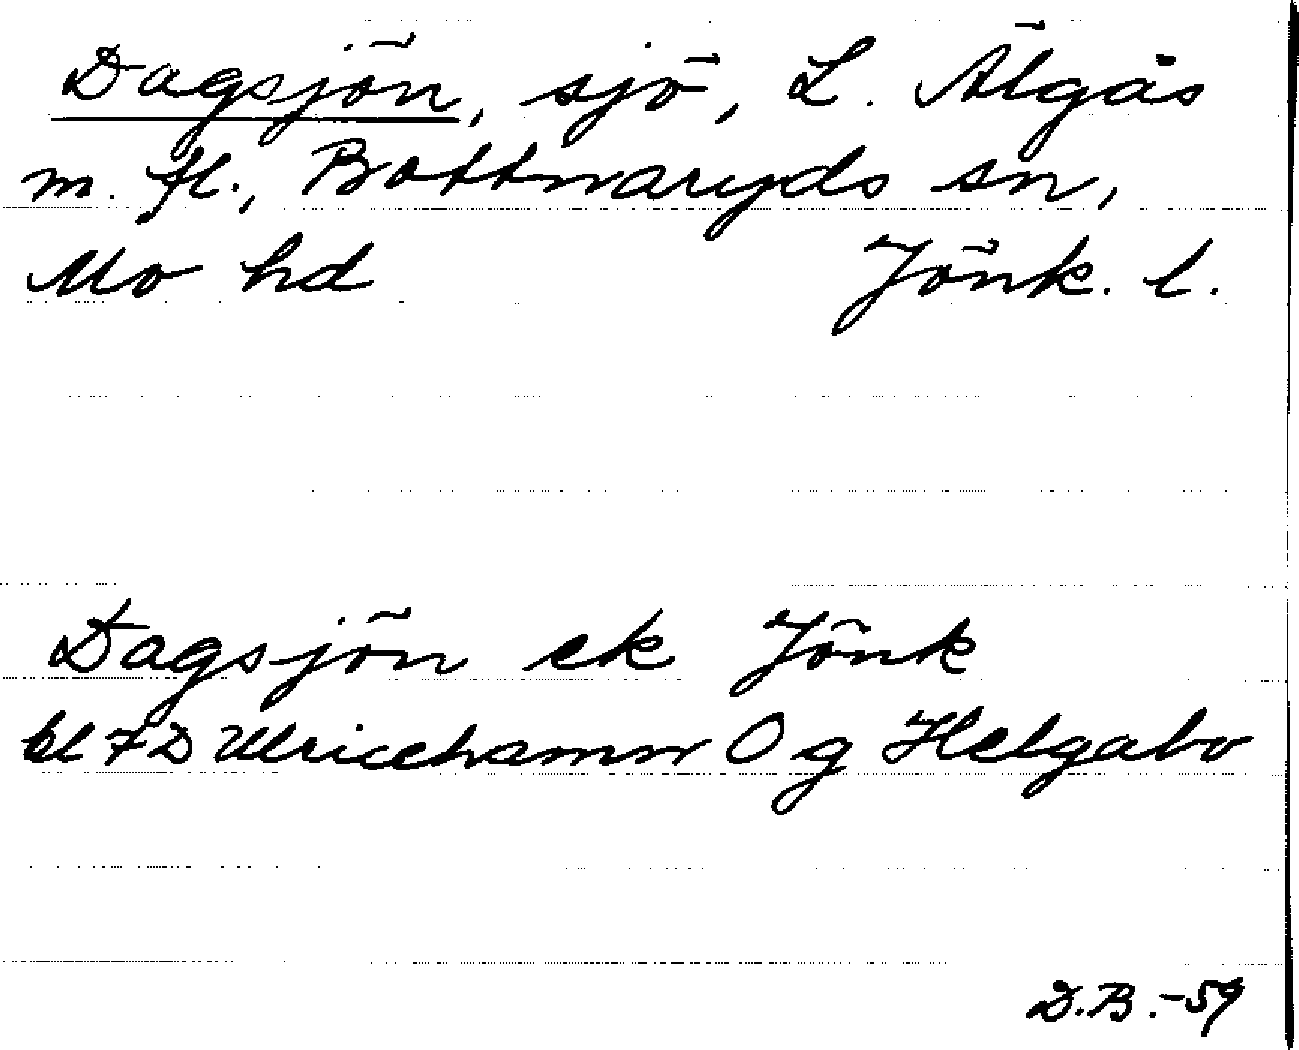 Dagsjön, sjö, L. Älgås
m. fl., Bottnaryds sn,
Mo hd Jönk. l.
Dagsjön ek Jönk
bl 7D Ulricehamn O g Helgabo
D.B.-59